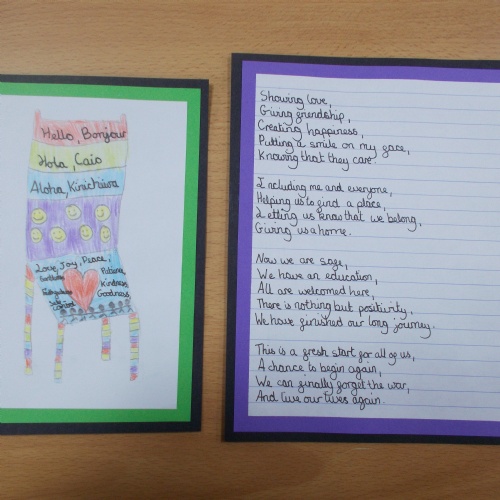 Hello, Bonjour
Hola, Caio
Aloha, Kinichiwa
Love, Joy, Peace,
Patience
Kindness
Goodness
Self
Control
Showing love,
Giving friendship,
Creating happiness,
Putting a smile on my face,
Knowing that they care.
Including me and everyone,
Helping us to find a place,
Letting us know that we belong,
Giving us a home.
Now we are safe,
We have an education,
All are welcomed here,
There is nothing but positivity,
We have finished our long journey.
This is a fresh start for all of us,
A chance to begin again,
We can finally forget the war,
And live our lives again.